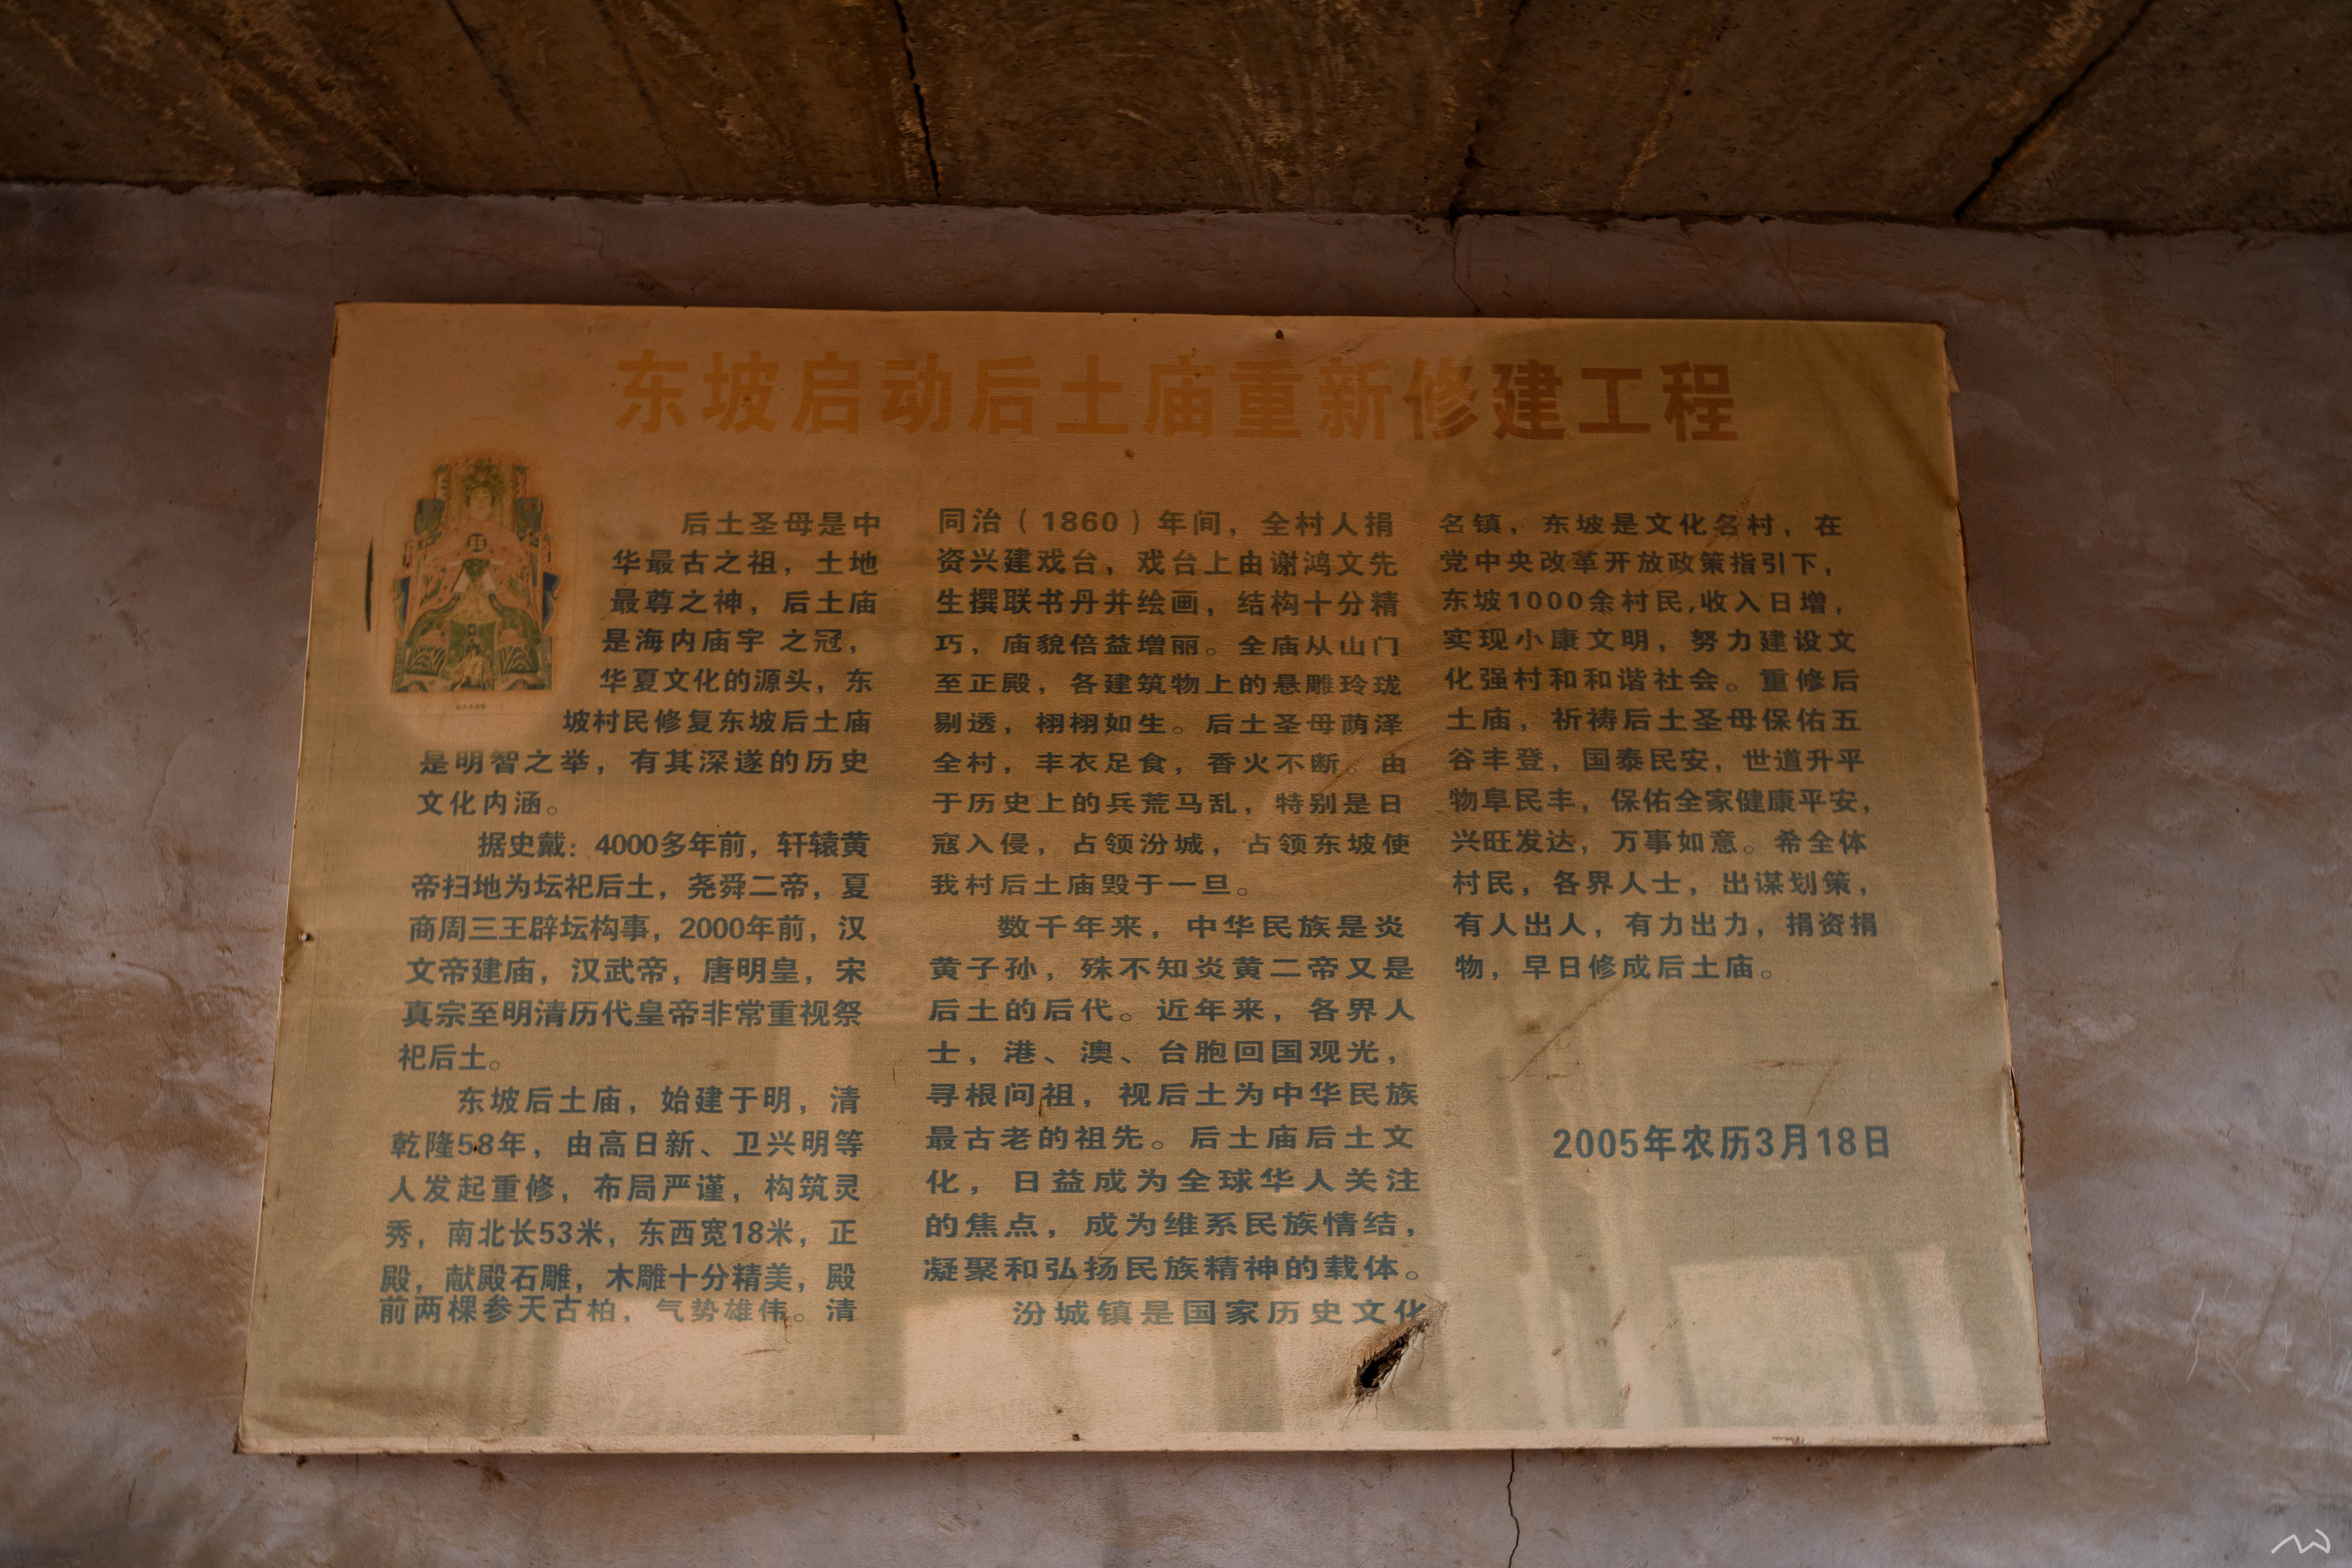 东坡启动后土庙重新修建工程
后土圣母是中
华最古之祖，土地
最尊之神，后土庙
是海内庙宇 之冠，
华夏文化的源头，东
坡村民修复东坡后土庙
是明智之举，有其深遂的历史
文化内涵。
据史戴：4000多年前，轩辕黄
帝扫地为坛祀后土，尧舜二帝，夏
商周三王辟坛构事，2000年前，汉
文帝建庙，汉武帝，唐明皇，宋
真宗至明清历代皇帝非常重视祭
祀后土。
东坡后土庙，始建于明，清
乾隆58年，由高日新、卫兴明等
人发起重修，布局严谨，构筑灵
秀，南北长53米，东西宽18米，正
殿，献殿石雕，木雕十分精美，殿
前两棵参天古柏，气势雄伟。清
同治（1860）年间，全村人捐
资兴建戏台，戏台上由谢鸿文先
生撰联书丹并绘画，结构十分精
巧，庙貌倍益增丽。全庙从山门
至正殿，各建筑物上的悬雕玲珑
剔透，栩栩如生。后土圣母荫泽
全村，丰衣足食，香火不断。由
于历史上的兵荒马乱，特别是日
寇入侵，占领汾城，占领东坡使
我村后土庙毁于一旦。
数千年来，中华民族是炎
黄子孙，殊不知炎黄二帝又是
后土的后代。近年来，各界人
士，港、澳、台胞回国观光，
寻根问祖，视后土为中华民族
最古老的祖先。后土庙后土文
化，日益成为全球华人关注
的焦点，成为维系民族情结，
凝聚和弘扬民族精神的载体。
汾城镇是国家历史文化
名镇，东坡是文化名村，在
党中央改革开放政策指引下，
东坡1000余村民,收入日增，
实现小康文明，努力建设文
化强村和和谐社会。重修后
土庙，祈祷后土圣母保佑五
谷丰登，国泰民安，世道升平
物阜民丰，保佑全家健康平安，
兴旺发达，万事如意。希全体
村民，各界人士，出谋划策，
有人出人，有力出力，捐资捐
物，早日修成后土庙。
2005年农历3月18日